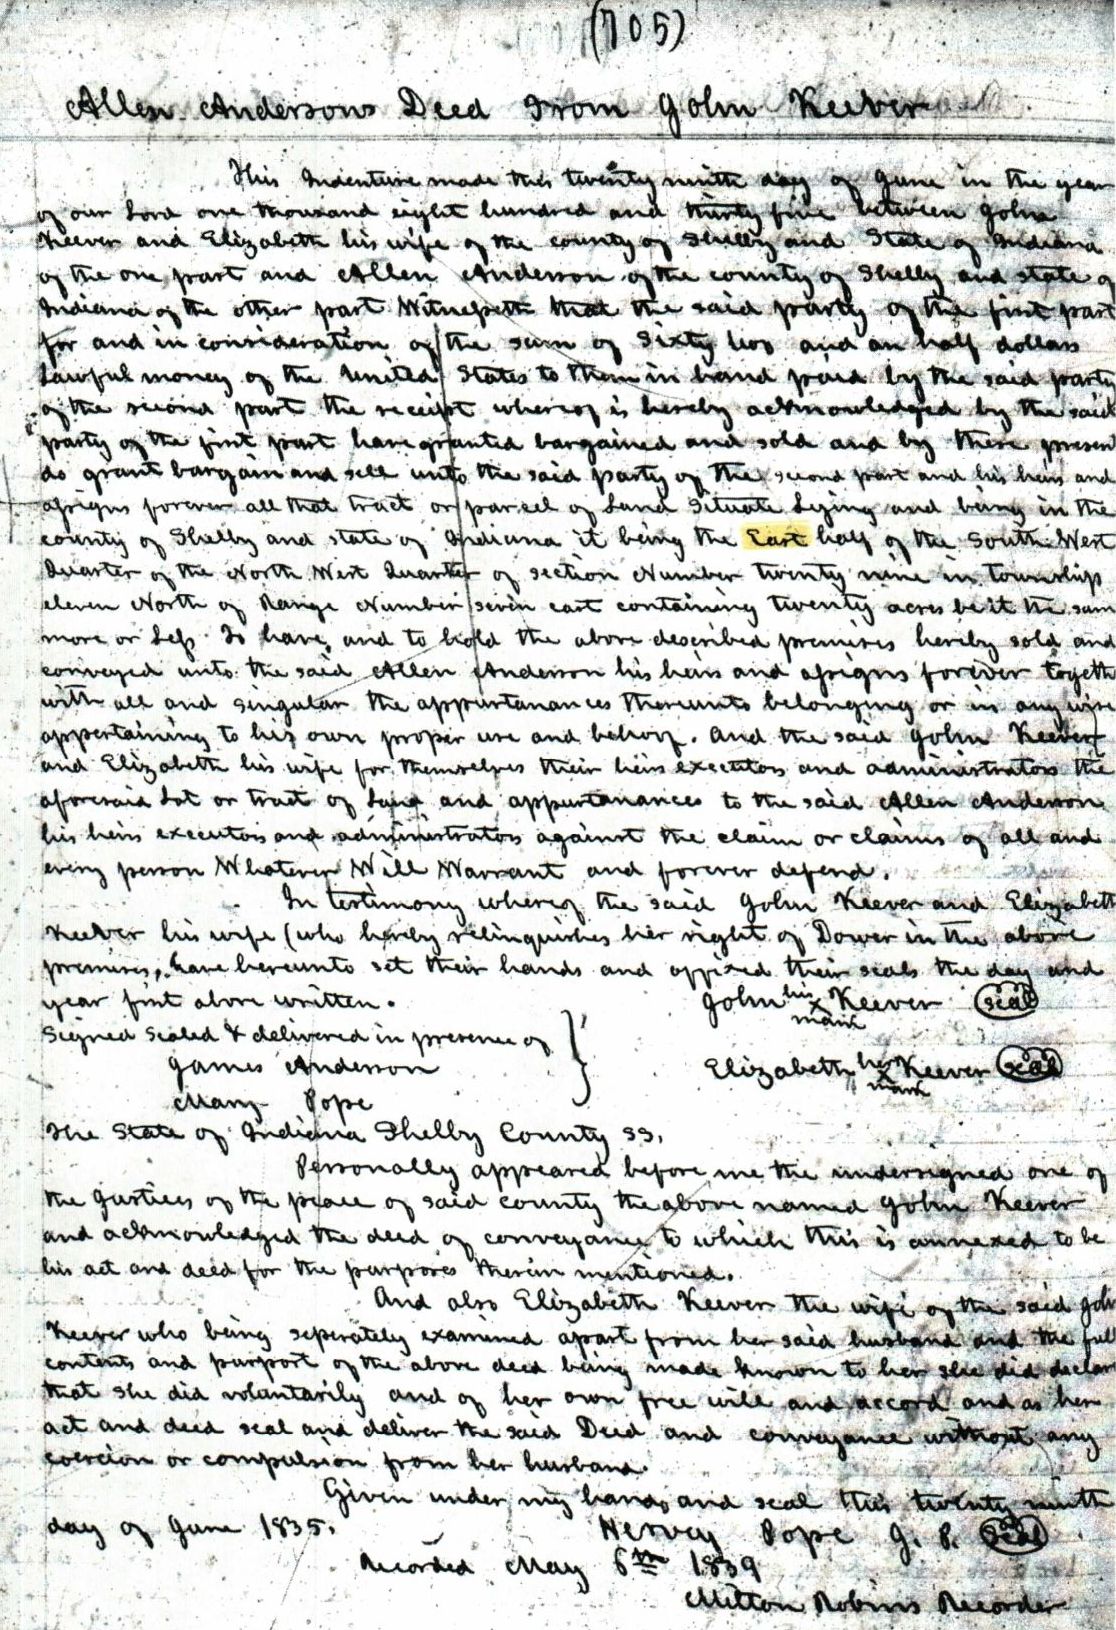 (705)
Allen Andersons Deed From John Keever
This Indenture made this twenty ninth day of June in the year
of our Lord one thousand eight hundred and thirty five between John
Keever and Elizabeth his wife of the county of Shelby and State of Indiana
of the one part and Allen Anderson of the county of Shelby and state of
Indiana of the other part Witnesseth that the said party of the first part
for and in consideration of the sum of Sixty two and an half dollars
Lawful money of the United States to them in hand paid by the said party
of the second part the receipt whereof is hereby acknowledged by the said
party of the first part have granted bargained and sold and by these presen
do grant bargain and sell unto the said party of the second part and his heirs and
assigns forever all that tract or parcel of Land Situate Lying and being in the
county of Shelby and state of Indiana it being the East half of the South West
Quarter of the North West Quarter of section Number twenty nine in township
eleven North of Range Number seven east containing twenty acres be it the sam
more or Less To have and to hold the above described premises hereby sold and
conveyed unto the said Allen Anderson his heirs and assigns forever togeth
with all and singular the appurtanances thereunto belonging or in any wise
appertaining to his own proper use and behoof. And the said John Keever
and Elizabeth his wife for themselves their heirs executors and administrators the
aforesaid Lot or tract of Land and appurtanances to the said Allen Anderson
his heirs executors and administrators against the claim or claims of all and
every person Whatever Will Warrant and forever defend.
In testimony whereof the said John Keever and Elizabeth
Keever his wife (who hereby relinquishes her right of Dower in the above
premises, have hereunto set their hands and affixed their seals the day and
year first above written. John his x mark Keever seal
Signed Sealed & delivered in presence of
James Anderson Elizabeth her x mark Keever seal
Mary Pope
The State of Indiana Shelby County ss,
Personally appeared before me the undersigned one of
the Justices of the peace of said county the above named John Keever
and acknowledged the deed of conveyance to which this is annexed to be
his act and deed for the purposes therein mentioned.
And also Elizabeth Keever the wife of the said John
Keever who being seperately examined apart from her said husband and the full
contents and purport of the above deed being made known to her she did declar
that she did voluntarily and of her own free will and accord and as her
act and deed seal and deliver the said Deed and conveyance without any
coercion or compulsion from her husband.
Given under my hand and seal this twenty ninth
day of June 1835. Hervey Pope J. P. Seal
Recorded May 6th 1839
Milton Robins Recorder